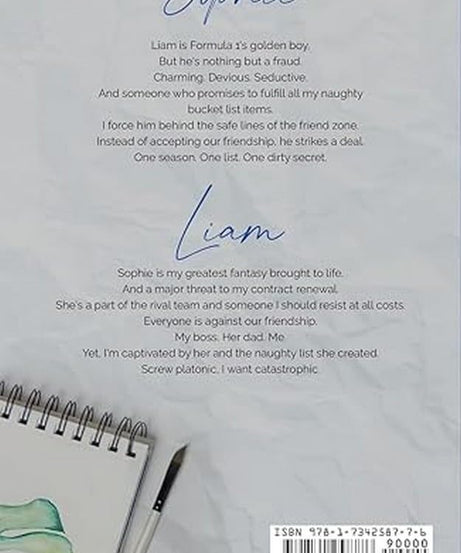 Sophie
Liam is Formula 1's golden boy.
But he's nothing but a fraud.
Charming. Devious. Seductive.
And someone who promises to fulfill all my naughty
bucket list items.
I force him behind the safe lines of the friend zone.
Instead of accepting our friendship, he strikes a deal.
One season. One list. One dirty secret.
Liam
Sophie is my greatest fantasy brought to life.
And a major threat to my contract renewal.
She's a part of the rival team and someone I should resist at all costs.
Everyone is against our friendship.
My boss. Her dad. Me.
Yet, I'm captivated by her and the naughty list she created.
Screw platonic, I want catastrophic.
ISBN 978-1-7342587-7-6
90000